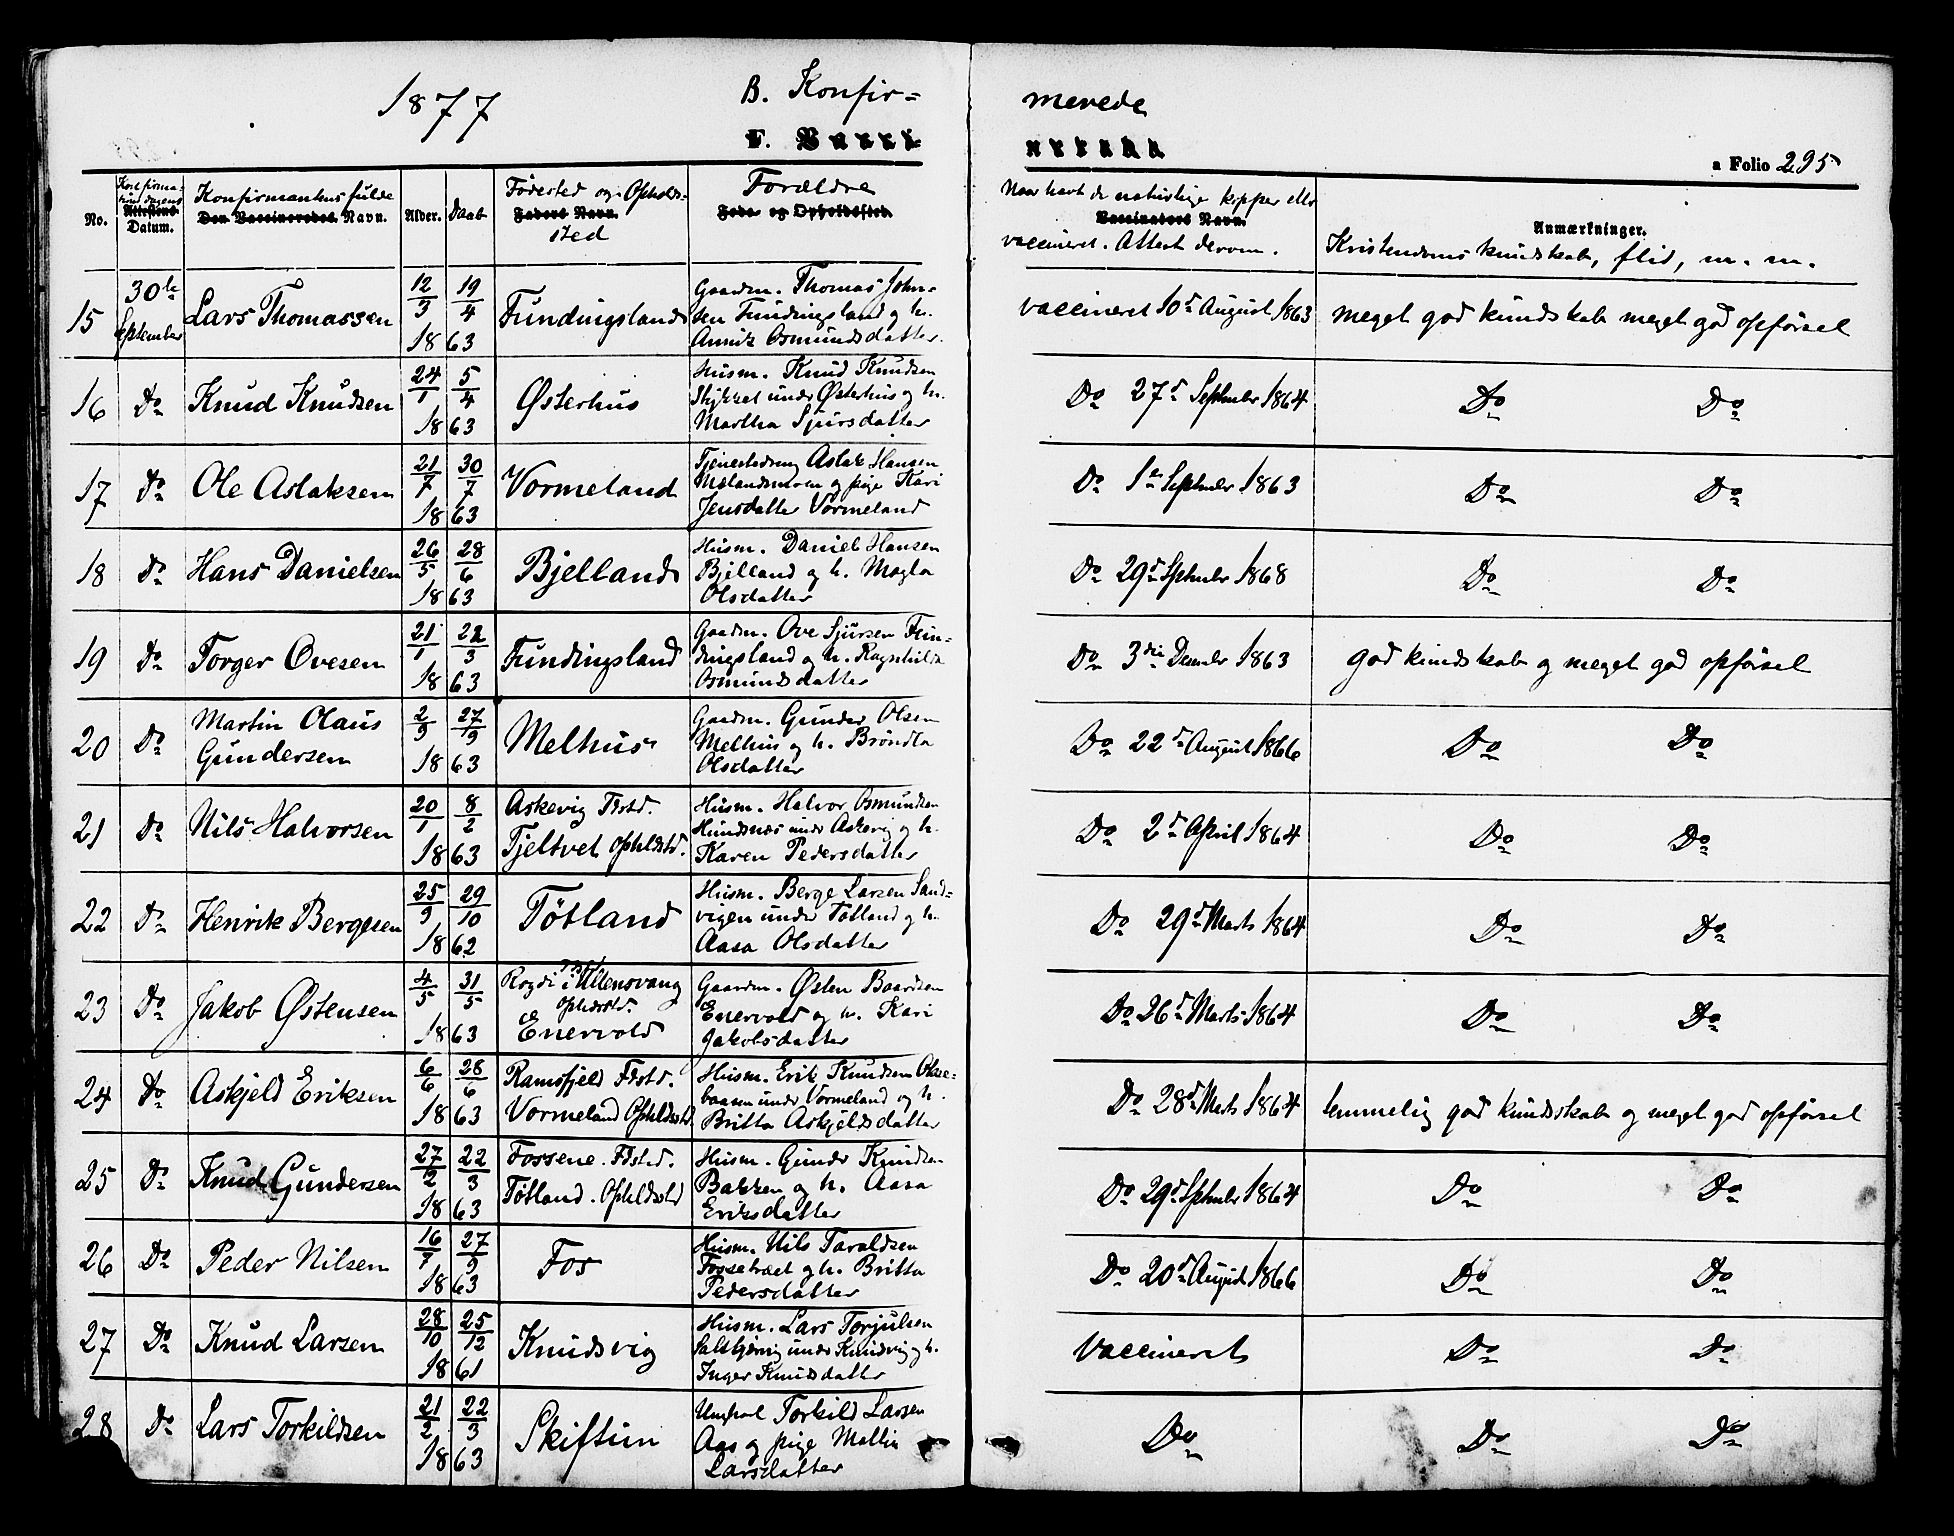 1877
B. Konfir=
merede
F. Vacci
nerede
a Folio 295
No.
Konfirma-
tionsdagens
Attestens
Datum.
Konfirmantens fulde
Den Vaccineredes Navn.
Alder.
Daab
Fødested og Opholds-
Faders Navn.
sted
Forældre
Føde og Opholdssted
Naar havt de naturlige kopper eller
Vaccinateurs Navn.
vaccineret. Attest derom.
Anmærkninger.
Kristendomskundskab, flid, m. m.
15 30te September Lars Thomassen 12/3 19/4 1863 Fundingsland
Gaardm. Thomas John-
sen Fundingsland og h.
Osmundsdatter.
vaccineret 10d August 1863 meget god kundskab meget god opførsel
16 Do Knud Knudsen 24/1 5/4 1863 Østerhus
Husm. Knud Knudsen
Stykket under Østerhus og h.
Martha Sjursdatter
Do 27d September 1864 Do Do
17 Do Ole Aslaksen 21/7 30/7 1863 Vormeland
Aslak Hansen
og pige Kari
Jensdatter Vormeland
Do 1te September 1863 Do Do
18 Do Hans Danielsen 26/5 28/6 1863 Bjelland
Husm. Daniel Hansen
Bjelland og h. Magla
Olsdatter
Do 29d September 1868 Do Do
19 Do Torger Ovesen 21/1 22/3 1863 Fundingsland
Gaardm. Ove Sjursen Fun-
dingsland og h. Ragnhilda
Osmundsdatter
Do 3die December 1863 god kundskab og meget god opførsel
20 Do Martin Olaus Gundersen 2/9 27/9 1863 Melhus
Gaardm. Gunder Olsen
Melhus og h. Brøndla
Olsdatter
Do 22d August 1866 Do Do
21 Do Nils Halvorsen 20/1 8/2 1863 Askevig Fdstd.
Tjeltvet Opholdstd.
Husm. Halvor Osmundsen
Hundsnæs under Askevig og h.
Karen Pedersdatter
Do 2d April 1864 Do Do
22 Do Henrik Bergesen 25/9 29/10 1862 Tøtland
Husm. Berge Larsen Sand-
vigen under Tøtland og h.
Aasa Olsdatter
Do 29d Marts 1864 Do Do
23 Do Jakob Østensen 4/5 31/5 1863 i Ullensvang
Opholdstd.
Enervold
Gaardm. Østen Baardsen
Enervold og h. Kari
Jakobsdatter
Do 26d Marts 1864 Do Do
24 Do Askjeld Eriksen 6/6 28/6 1863 Ramsfjeld Fdstd.
Vormeland Opholdstd.
Husm. Erik Knudsen
under Vormeland og h.
Britta Askjeldsdatter
Do 28d Marts 1864 temmelig god kundskab og meget god opførsel
25 Do Knud Gundersen 27/2 22/3 1863 Fossene. Fdsted.
Tøtland. Opholdsted
Husm. Gunder Knudsen
Bakken og h. Aasa
Eriksdatter
Do 29d September 1864 Do Do
26 Do Peder Nilsen 16/7 27/9 1863 Fos
Husm. Nils Taraldsen
Fossetræet og h. Britta
Pedersdatter
Do 20d August 1866 Do Do
27 Do Knud Larsen 28/10 25/12 1861 Knudsvig
Husm. Lars Torjulsen
under Knudsvig og h.
Inger Knudsdatter
Vaccineret Do Do
28 Do Lars Torkildsen 21/2 22/3 1863 Skiftun
Ungkarl Torkild Larsen
Aas og pige
Larsdatter
Do Do Do